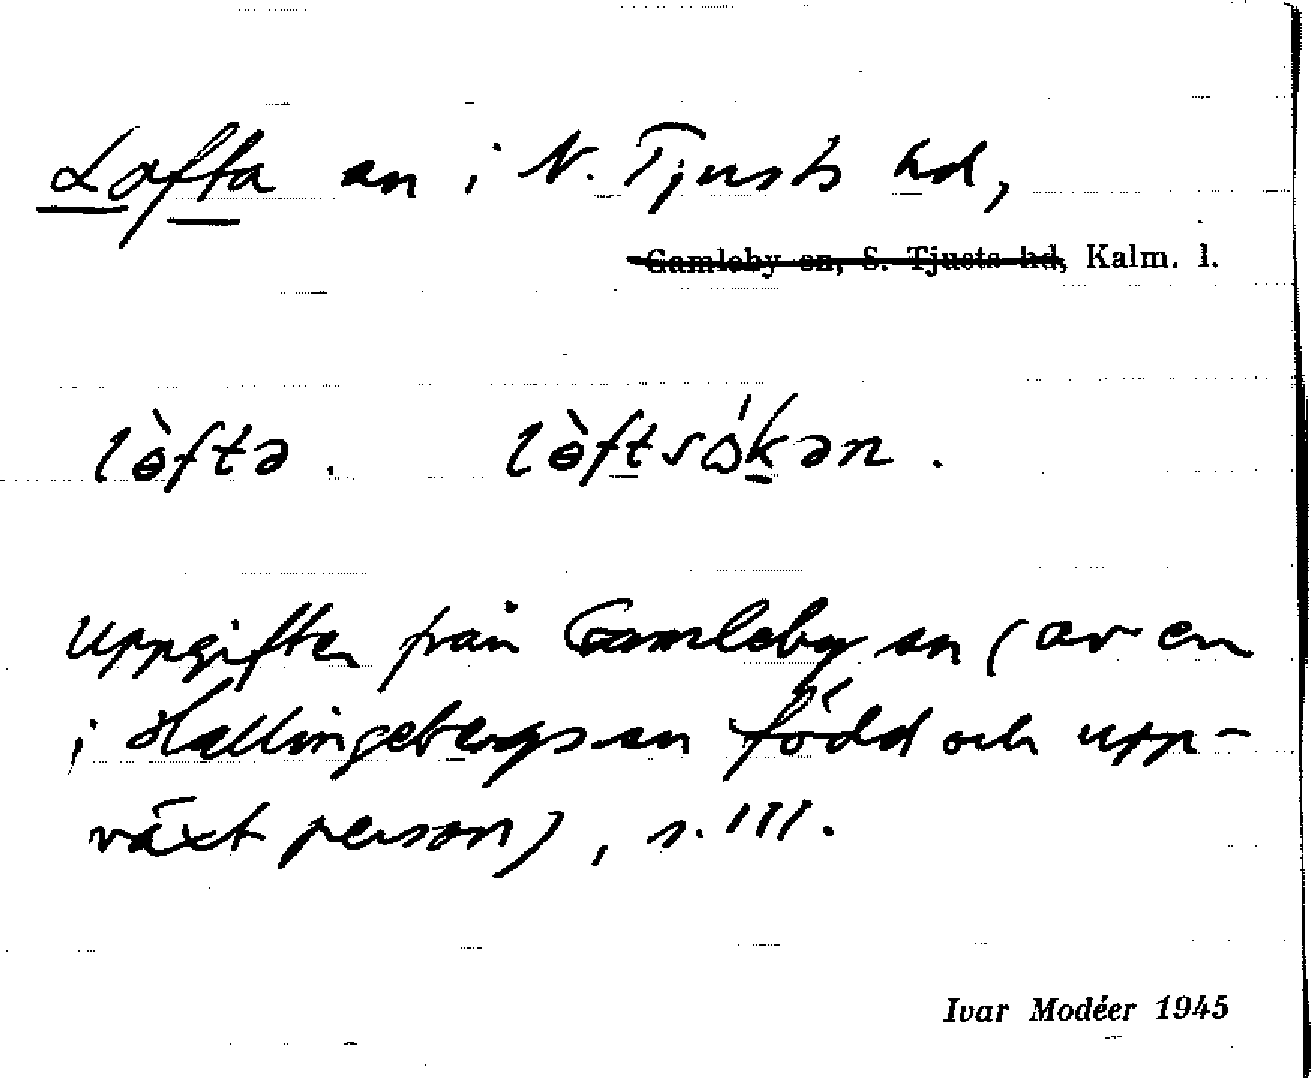 Lofta sn i N. Tjusts hd,
Gamleby sn, S. Tjusts hd, Kalm. l.
lɵ̀ftə. lɵ̀ftsɷ́kən.
Uppgiften från Gamleby sn (av en
i Hallingebergs sn född och upp-
växt person), s. 111.
Ivar Modéer 1945